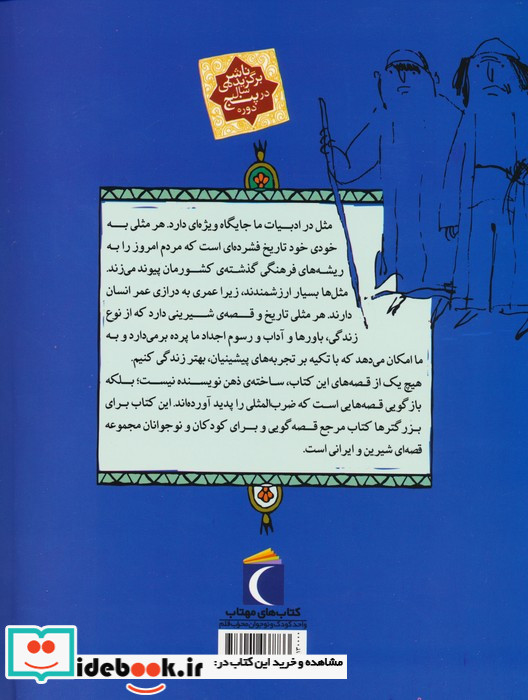 ناشر
برگزیده‌ی
سال
در پنج
دوره
مثل در ادبیات ما جایگاه ویژه‌ای دارد. هر مثلی به
خودی خود تاریخ فشرده‌ای است که مردم امروز را به
ریشه‌های فرهنگی گذشته‌ی کشورمان پیوند می‌زند.
مثل‌ها بسیار ارزشمندند، زیرا عمری به درازی عمر انسان
دارند. هر مثلی تاریخ و قصه‌ی شیرینی دارد که از نوع
زندگی، باورها و آداب و رسوم اجداد ما پرده برمی‌دارد و به
ما امکان می‌دهد که با تکیه بر تجربه‌های پیشینیان، بهتر زندگی کنیم.
هیچ یک از قصه‌های این کتاب، ساخته‌ی ذهن نویسنده نیست؛ بلکه
بازگویی قصه‌هایی است که ضرب‌المثلی را پدید آورده‌اند. این کتاب برای
بزرگترها کتاب مرجع قصه‌گویی و برای کودکان و نوجوانان مجموعه
قصه‌ای شیرین و ایرانی است.
کتاب‌های مهتاب
واحد کودک و نوجوان محراب قلم
۱۳۰۰۰
مشاهده و خرید این کتاب در:
idebook.ir